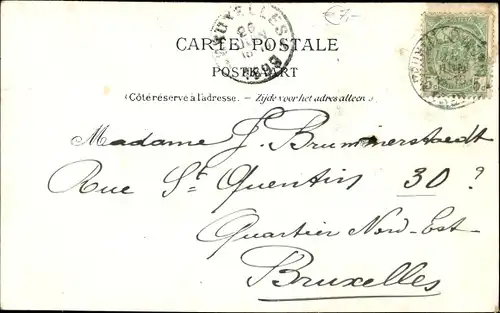 CARTE POSTALE
POSTKAART
(Côté réservé à l'adresse. - Zijde voor het adres alleen.)
BRUXELLES
Madame J. Brummerstaedt
Rue St Quentin 30 ?
Quartier Nord-Est-
Bruxelles